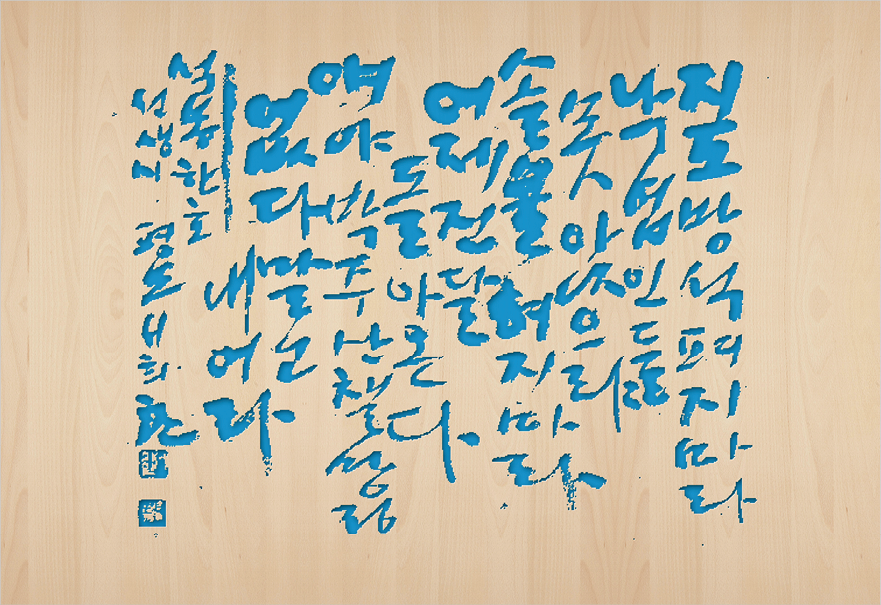 짚방석 펴지마라
낙엽인들
못 앉으리
솔불 혀지마라
어제 진달
돌아온다
얘야 박주산챌망정
없다 말고
내어라
석봉 한호
선생 시 평보 서희환